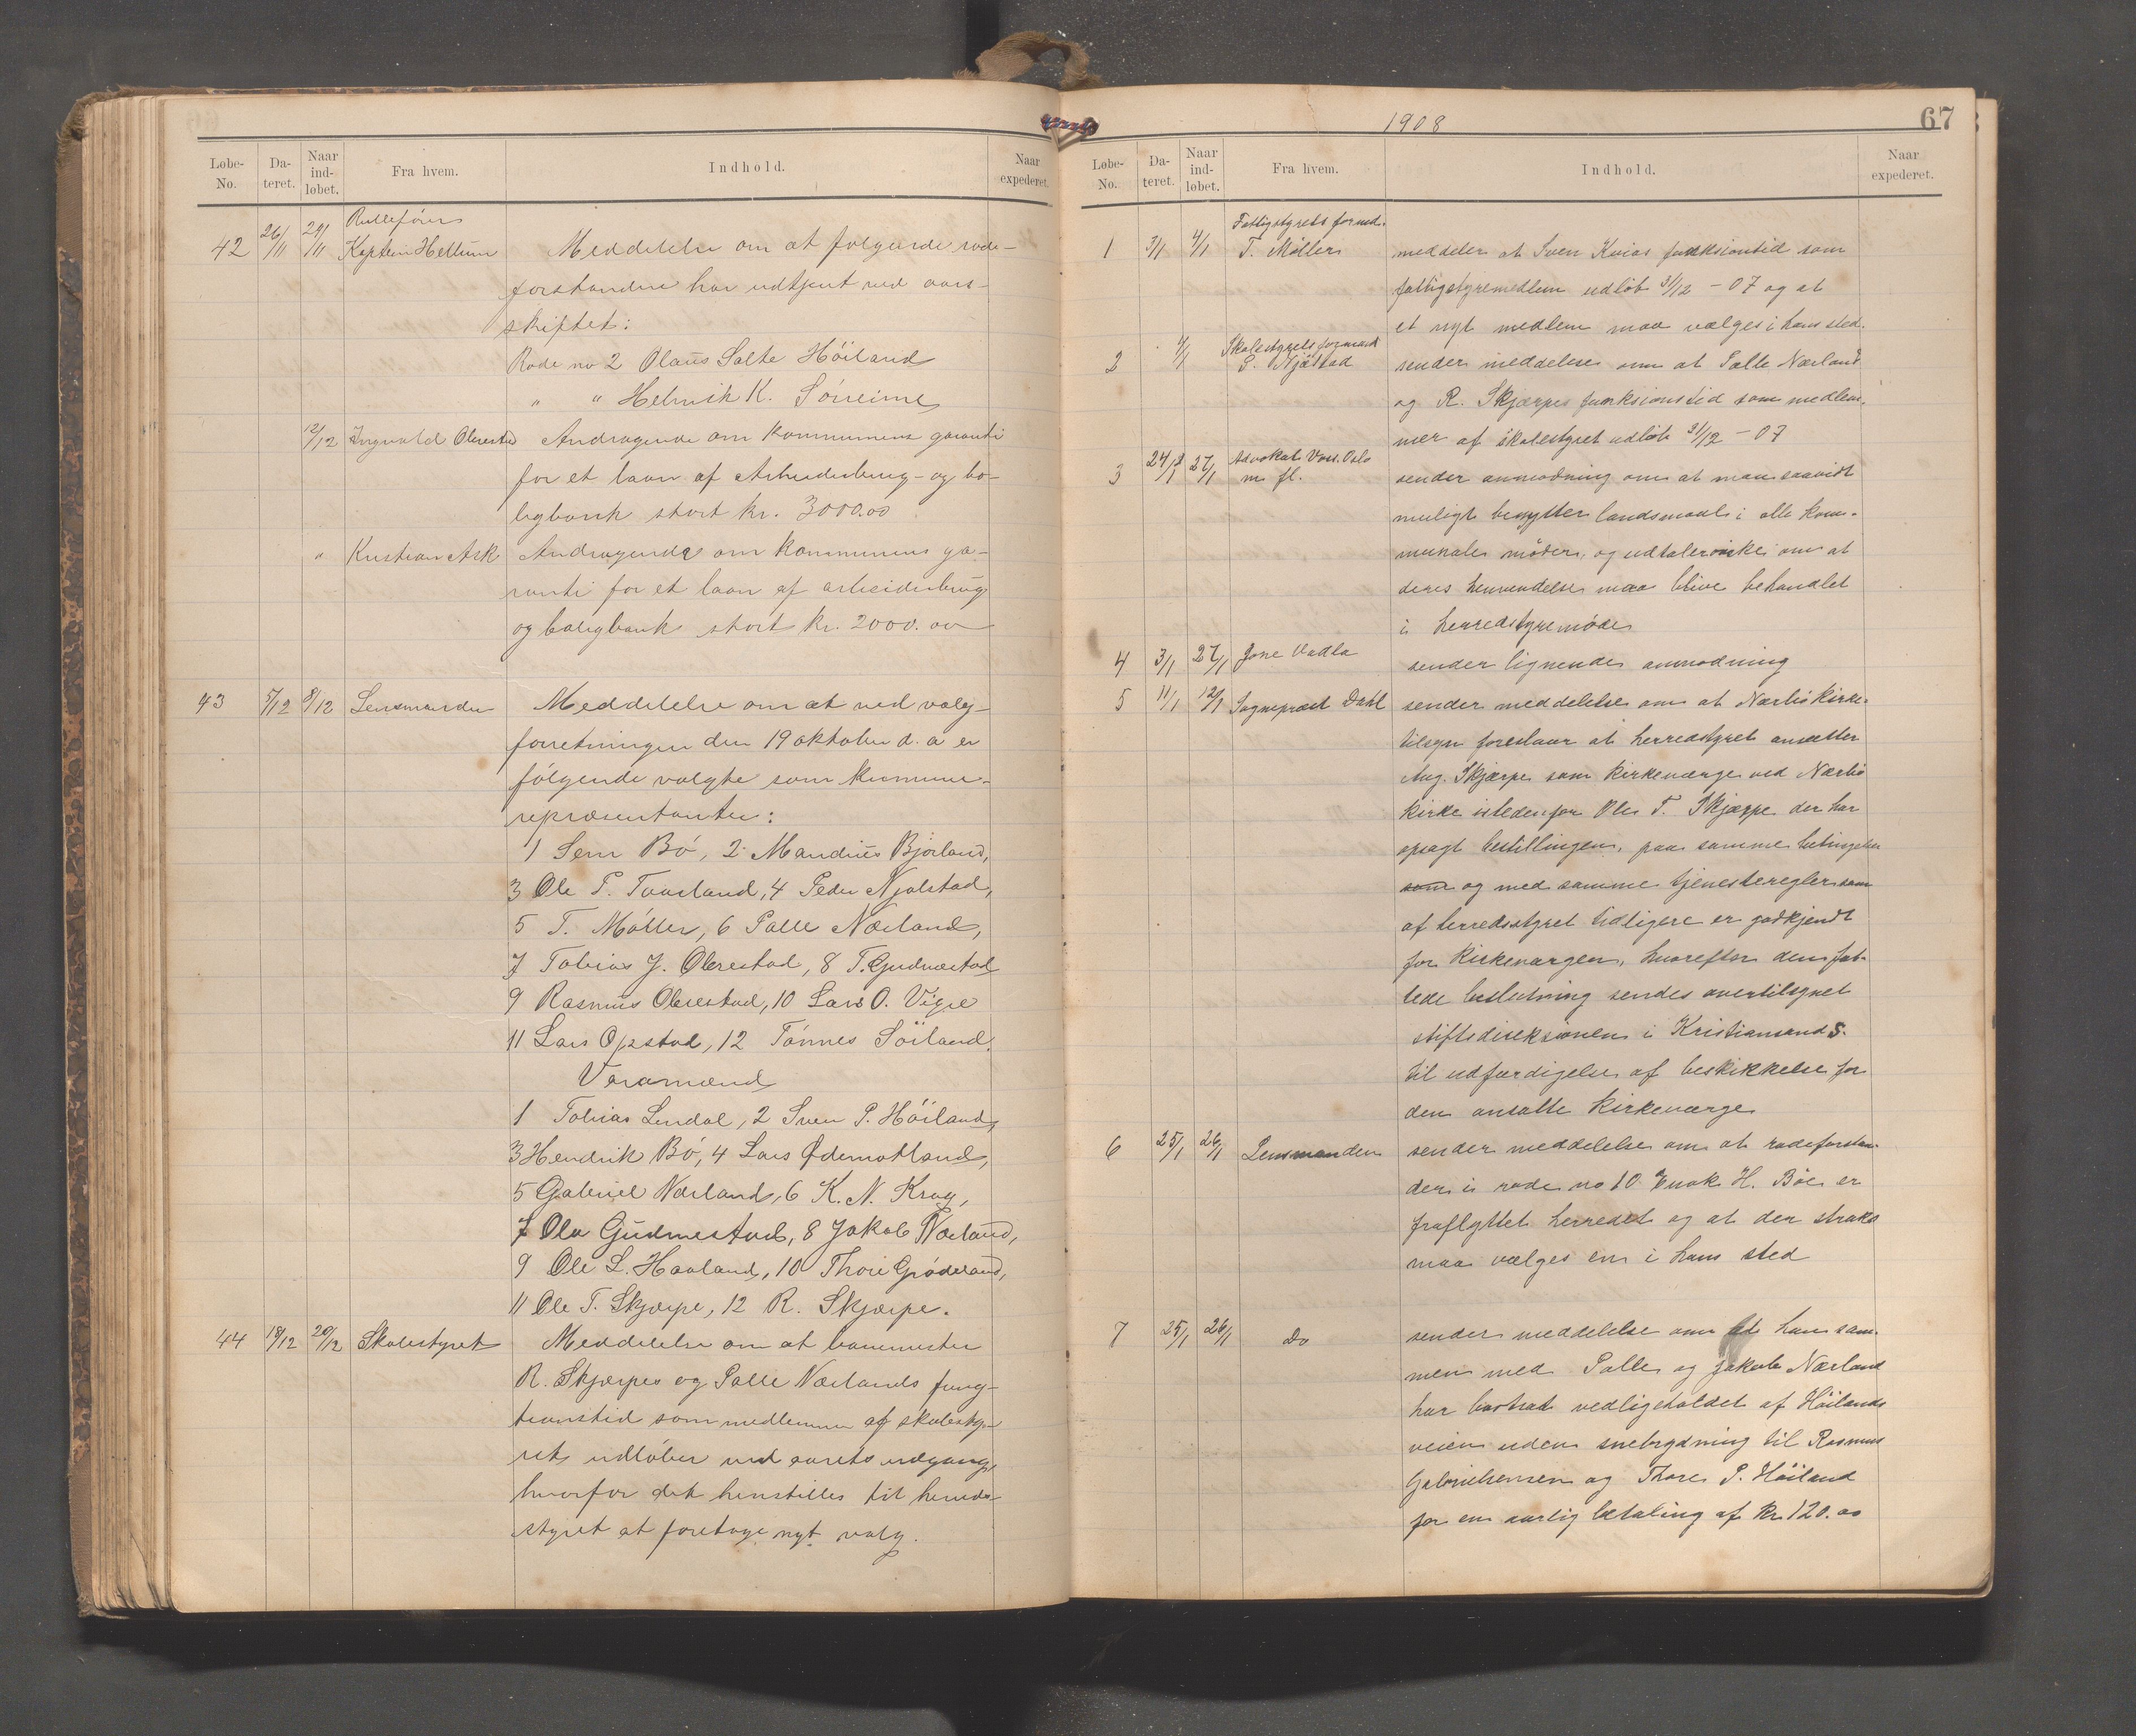 Løbe-No. Dateret. Naar indløbet. Fra hvem. Indhold. Naar expederet.
42 26/11 29/11 Rulleförer
Kaptein Hellum Meddelelse om at følgende rode-
forstandere har udtjent ved aars-
skiftet:
Rode no 2 Olaus Salte Höiland
" " Helmik K. Sörreime
12/12 Ingvald Obrestad Andragende om kommunens garanti
for et laan af Arbeiderbrug- og bo-
ligbank stort kr. 3000.00
" Kristian Ask Andragende om kommunens ga-
ranti for et laan af arbeiderbrug
og boligbank stort kr. 2000.00
43 5/12 8/12 Lensmanden Meddelelse om at ved valg-
forretningen den 19 oktober d. a er
følgende valgte som kommune-
repræsentanter:
1 Sem Bö, 2 Mandius Bjorland,
3 Ole P. Taarland, 4 Peder Njølstad,
5 T. Möller, 6 Palle Nærland,
7 Tobias J. Obrestad, 8 T. Gudmestad
9 Rasmus Obrestad, 10 Lars O. Vigre
11 Lars Opstad, 12 Tönnes Söiland.
Varamænd
1 Tobias Lendal, 2 Sven P. Höiland,
3 Hendrik Bö, 4 Lars Ødemotland,
5 Gabriel Nærland, 6 K. N. Krag,
7 Ola Gudmestad, 8 Jakob Nærland,
9 Ole L. Haaland, 10 Thore Gröderland,
11 Ole T. Skjærpe, 12 R. Skjærpe.
44 18/12 20/12 Skolestyret Meddelelse om at banemester
R. Skjærpes og Palle Nærlands fung-
tionstid som medlemmer af skolesty-
ret udlöber ved aarets udgang,
hvorfor det henstilles til herreds-
styret at foretage nyt valg.
1908
67
Løbe-No. Dateret. Naar indløbet. Fra hvem. Indhold. Naar expederet.
1 3/1 4/1 Fattigstyrets formd.
T. Möller meddeler at Sven Kvias funksionstid som
fattigstyremedlem udløb 31/12 - 07 og at
et nyt medlem maa vælges i hans sted.
2 4/1 Skolestyrets formand
P. Njølstad sender meddelelse om at Palle Nærland
og R. Skjærpes funksionstid som medlem-
mer af skolestyret udløb 31/12 - 07
3 24/1 27/1 Advokat Voss. Oslo
m fl. sender anmodning om at man saavidt
muligt benytter landsmaal i alle kom-
munale møder, og udtaler ønske om at
deres henvendelse maa blive behandlet
i herredstyremøde
4 3/1 27/1 Jone Vadla sender lignende anmodning
5 11/1 12/1 Sogneprest Dahl sender meddelelse om at Nærbö kirke-
tilsyn foreslaar at herredstyret ansætter
Aug. Skjærpe som kirkeværge ved Nærbö
kirke istedenfor Ole T. Skjærpe der har
opsagt bestillingen, paa samme betingelser
som og med samme tjenesteregler som
af herredsstyret tidligere er godkjendt
for kirkeværgen, hvorefter den fat-
tede beslutning sendes overtilsynet
stiftsdireksionen i Kristiansand S.
til udfærdigelse af beskikkelse for
den ansatte kirkeværge
6 25/1 26/1 Lensmanden sender meddelelse om at rodeforstan-
der i rode no 10 Enok H. Böe er
fraflyttet herredet og at der straks
maa vælges en i hans sted
7 25/1 26/1 Do sender meddelelse om at han sam-
men med Palle og Jakob Nærland
har bortsat vedligeholdet af Höilands
veien uden snebrydning til Rasmus
Gabrielsensen og Thore P. Höiland
for en aarlig betaling af kr. 120.00